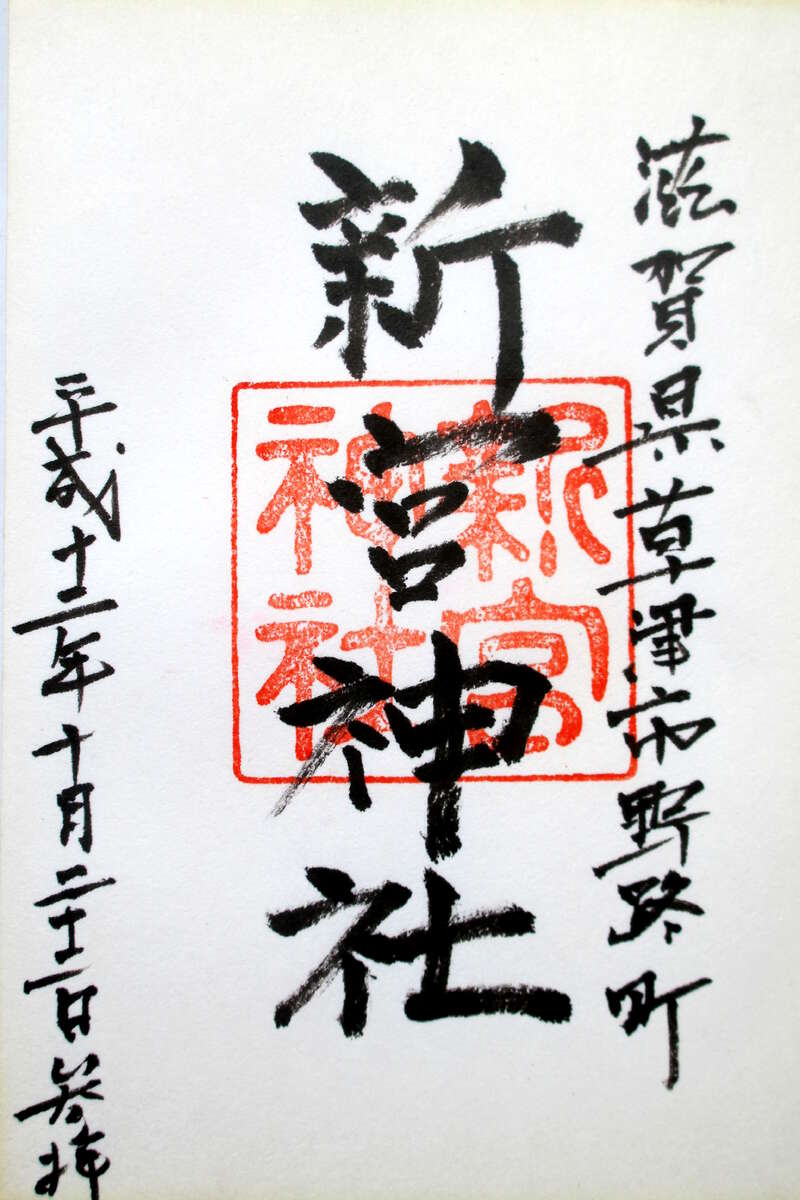 滋賀県草津市野路町
新宮神社
新宮
神社
平成十二年十月二十二日参拝